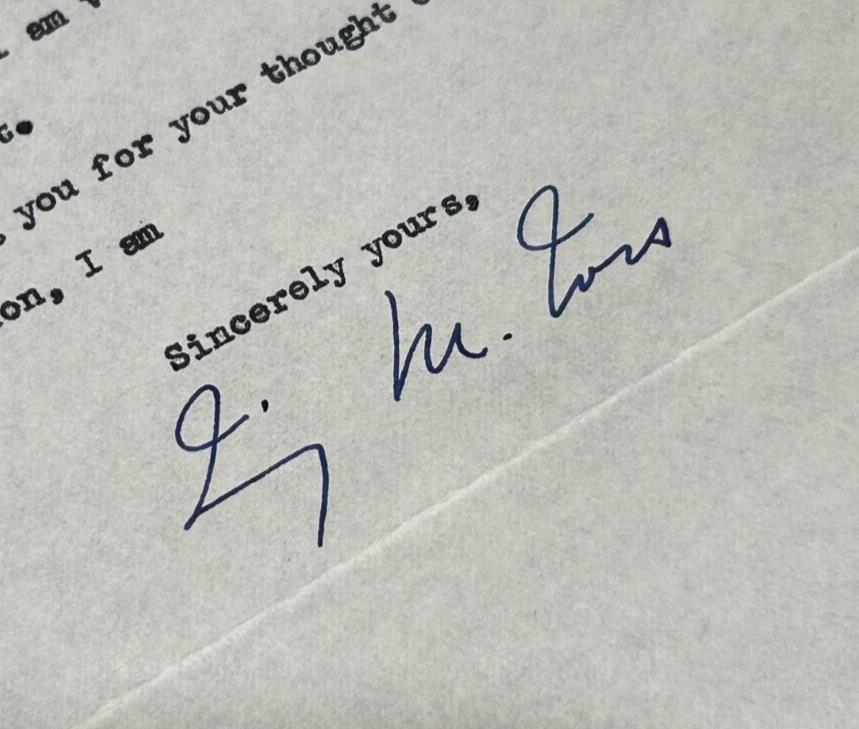 I am
you for your thought
ion, I am
Sincerely yours,
M.